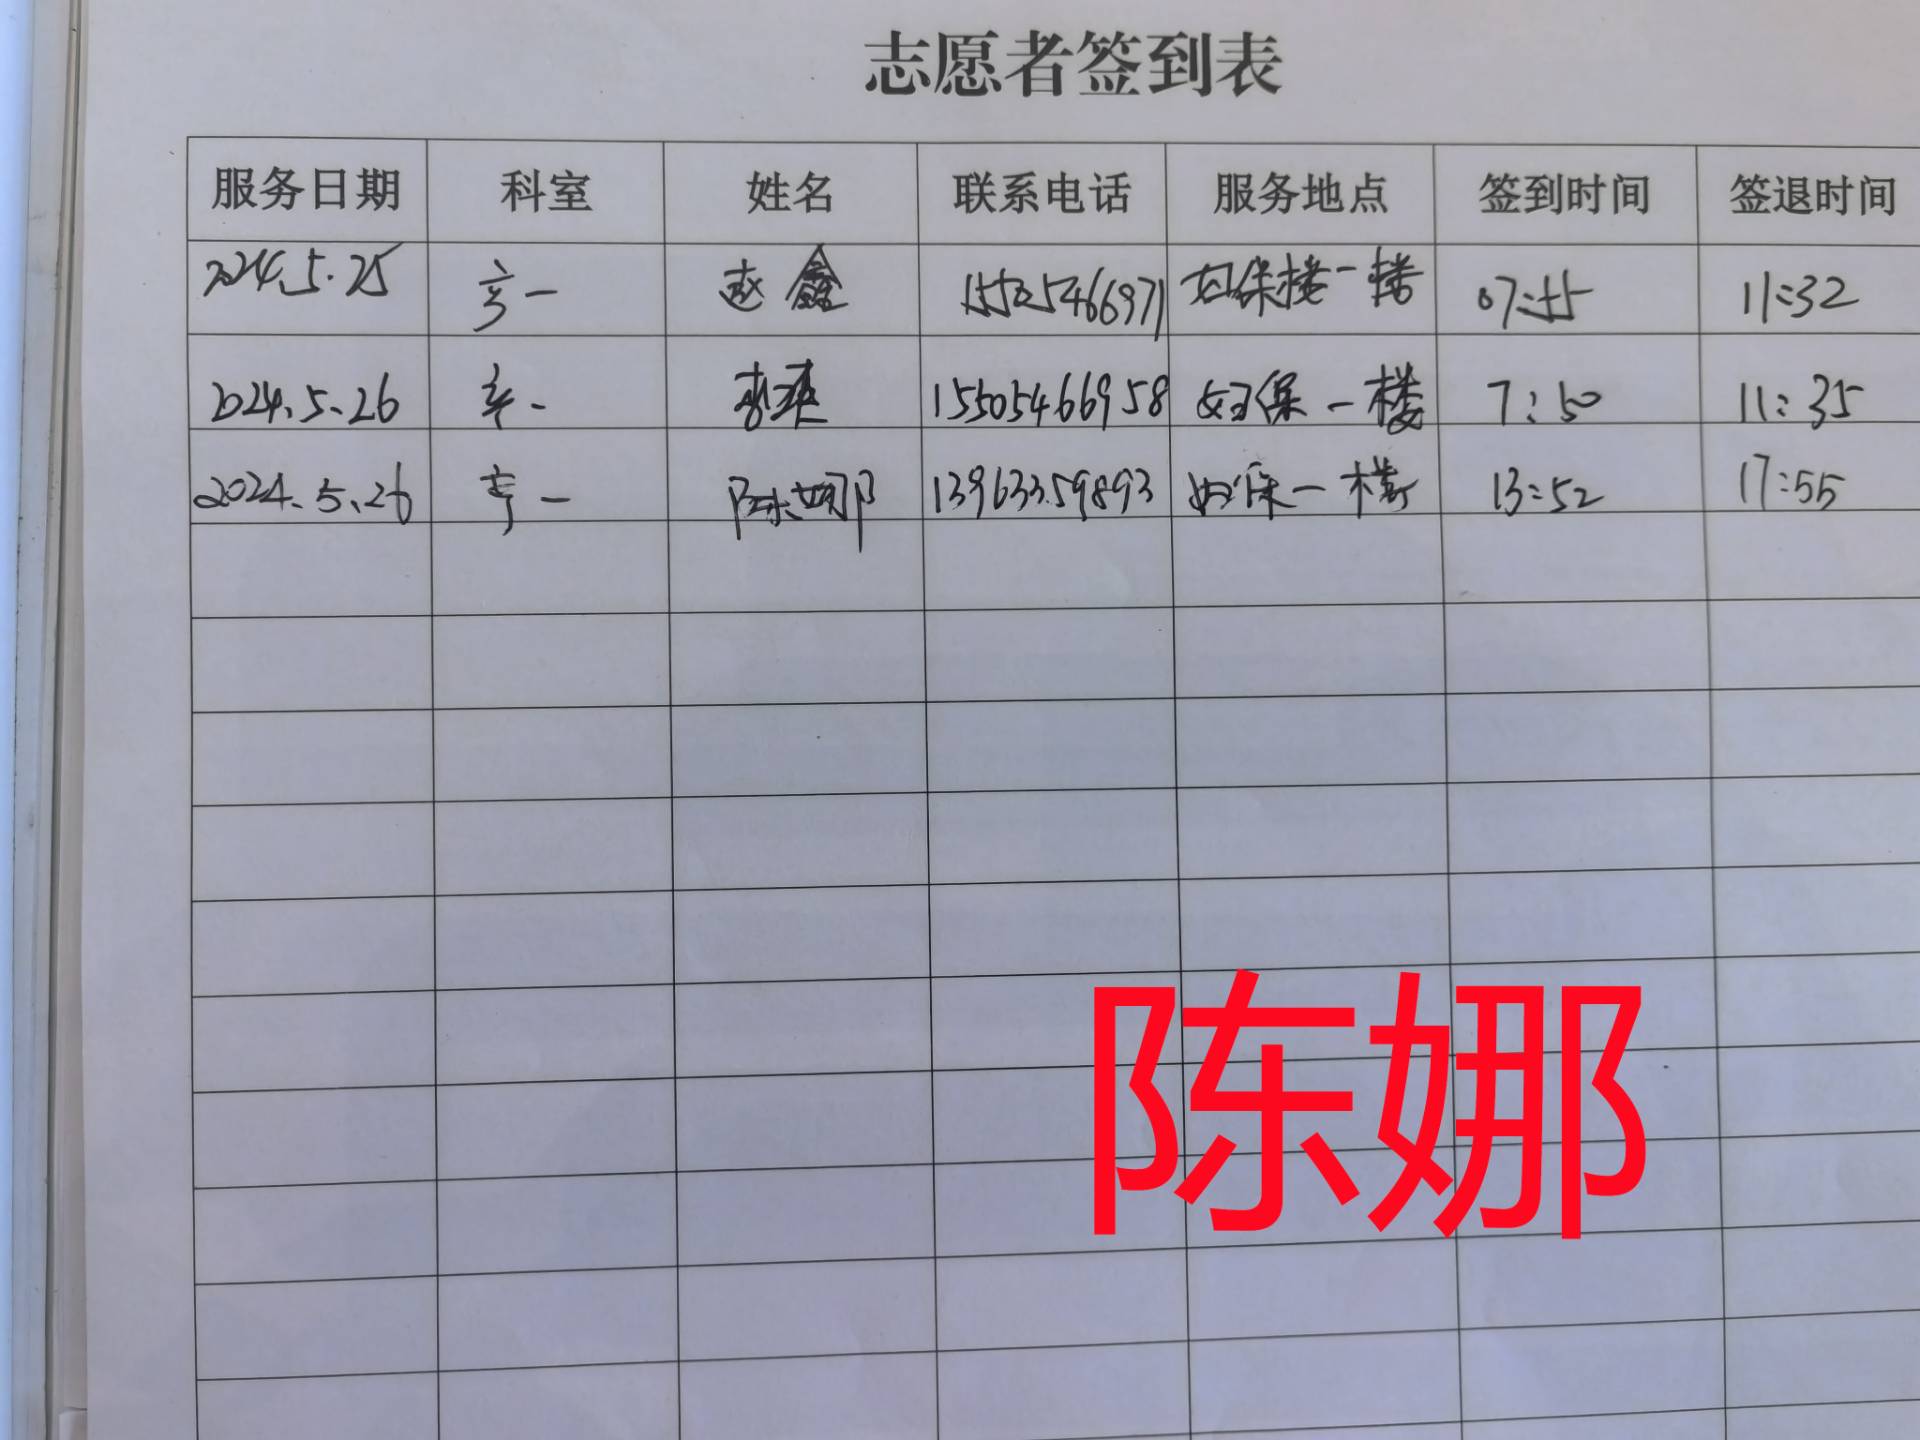 志愿者签到表
服务日期 科室 姓名 联系电话 服务地点 签到时间 签退时间
2024.5.25 一 赵鑫 15505466971 妇保楼一楼 07:55 11:32
2024.5.26 一 15505466958 妇保一楼 7:50 11:35
2024.5.26 一 陈娜 13963359893 妇保一楼 13:52 17:55
陈娜